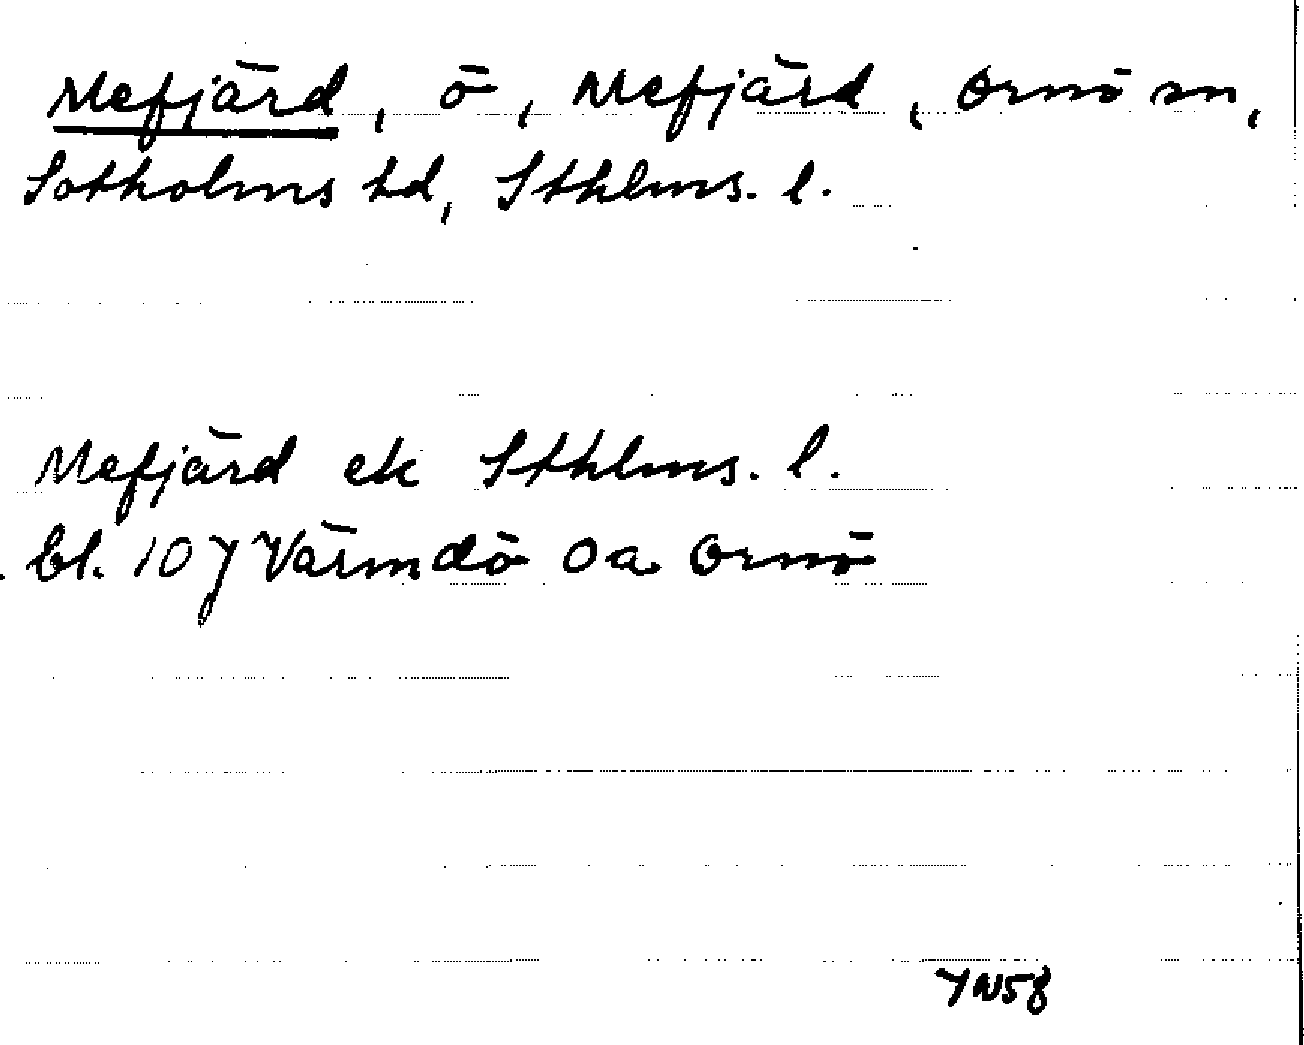 Mefjärd, ö, Mefjärd, Ornö sn,
Sotholms hd, Sthlms. l.
Mefjärd ek Sthlms. l.
bl. 10 J Värmdö Oa Ornö